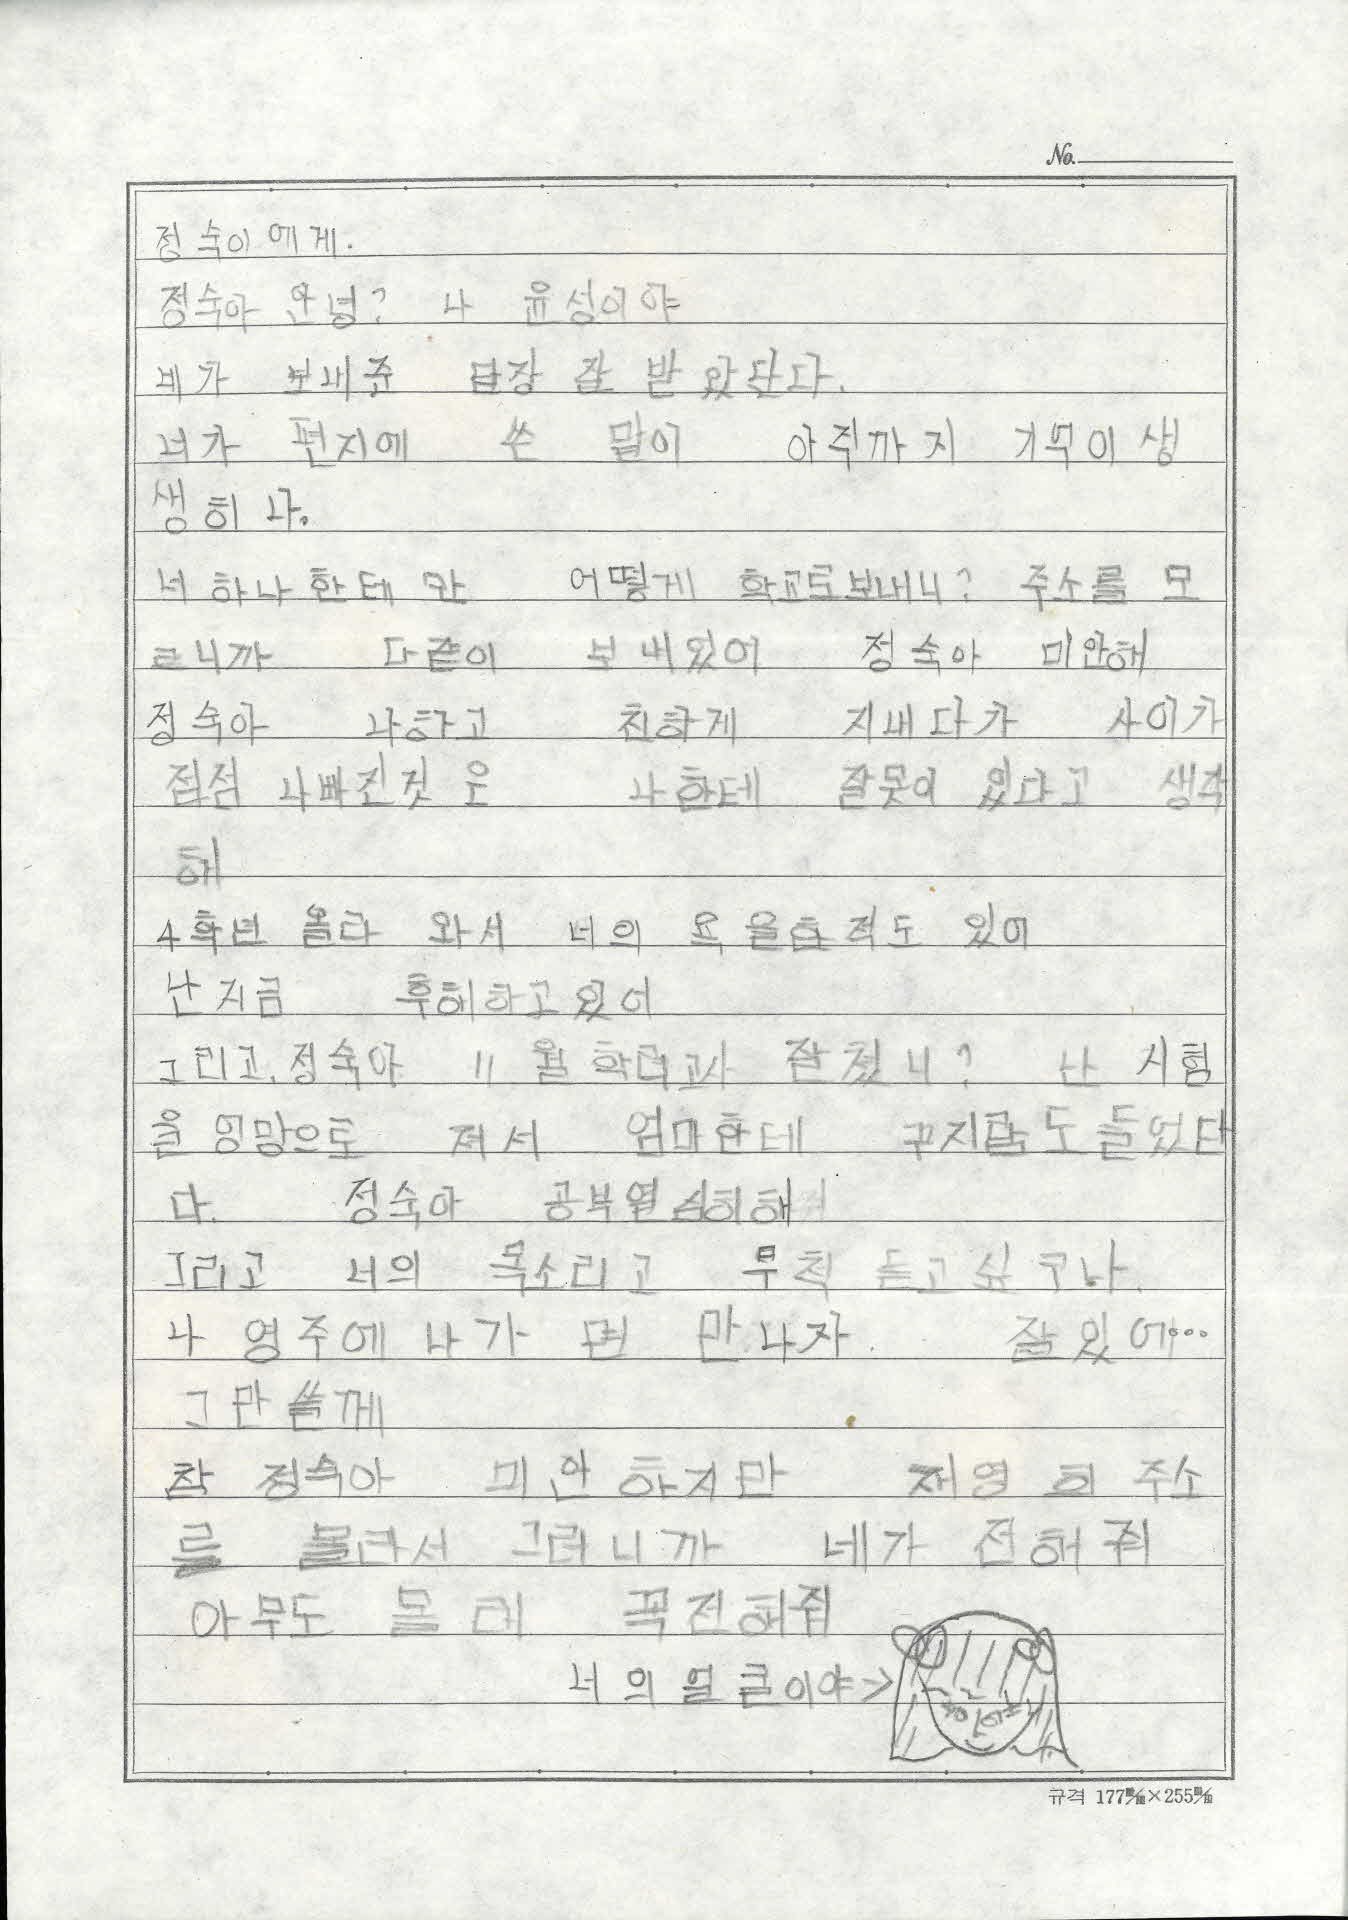 No.
정숙이에게.
정숙아 안녕? 나 윤성이야
네가 보내준 답장 잘 받았단다.
너가 편지에 쓴 말이 아직까지 기억이 생
생히 나.
너 하나한테만 어떻게 학교로보내니? 주소를 모
르니까 다같이 보내있어 정숙아 미안해
정숙아 나하고 친하게 지내다가 사이가
점점 나빠진것은 나한테 잘못이 있다고 생각
해
4학년 올라 와서 너의 욕을한적도 있어
난지금 후해하고있어
그리고, 정숙아 11월학력고사 잘쳤니? 난 시험
을 엉망으로 쳐서 엄마한테 꾸지람도들었단
다. 정숙아 공부열심히해
그리고 너의 목소리고 무척 듣고싶구나.
나 영주에 나가면 만나자. 잘있어...
그만쓸께
참 정숙아 미안하지만 재영희 주소
를 몰라서 그러니까 네가 전해줘
아무도 몰래 꼭전해줘
너의얼굴이야→
규격 177㎜×255㎜